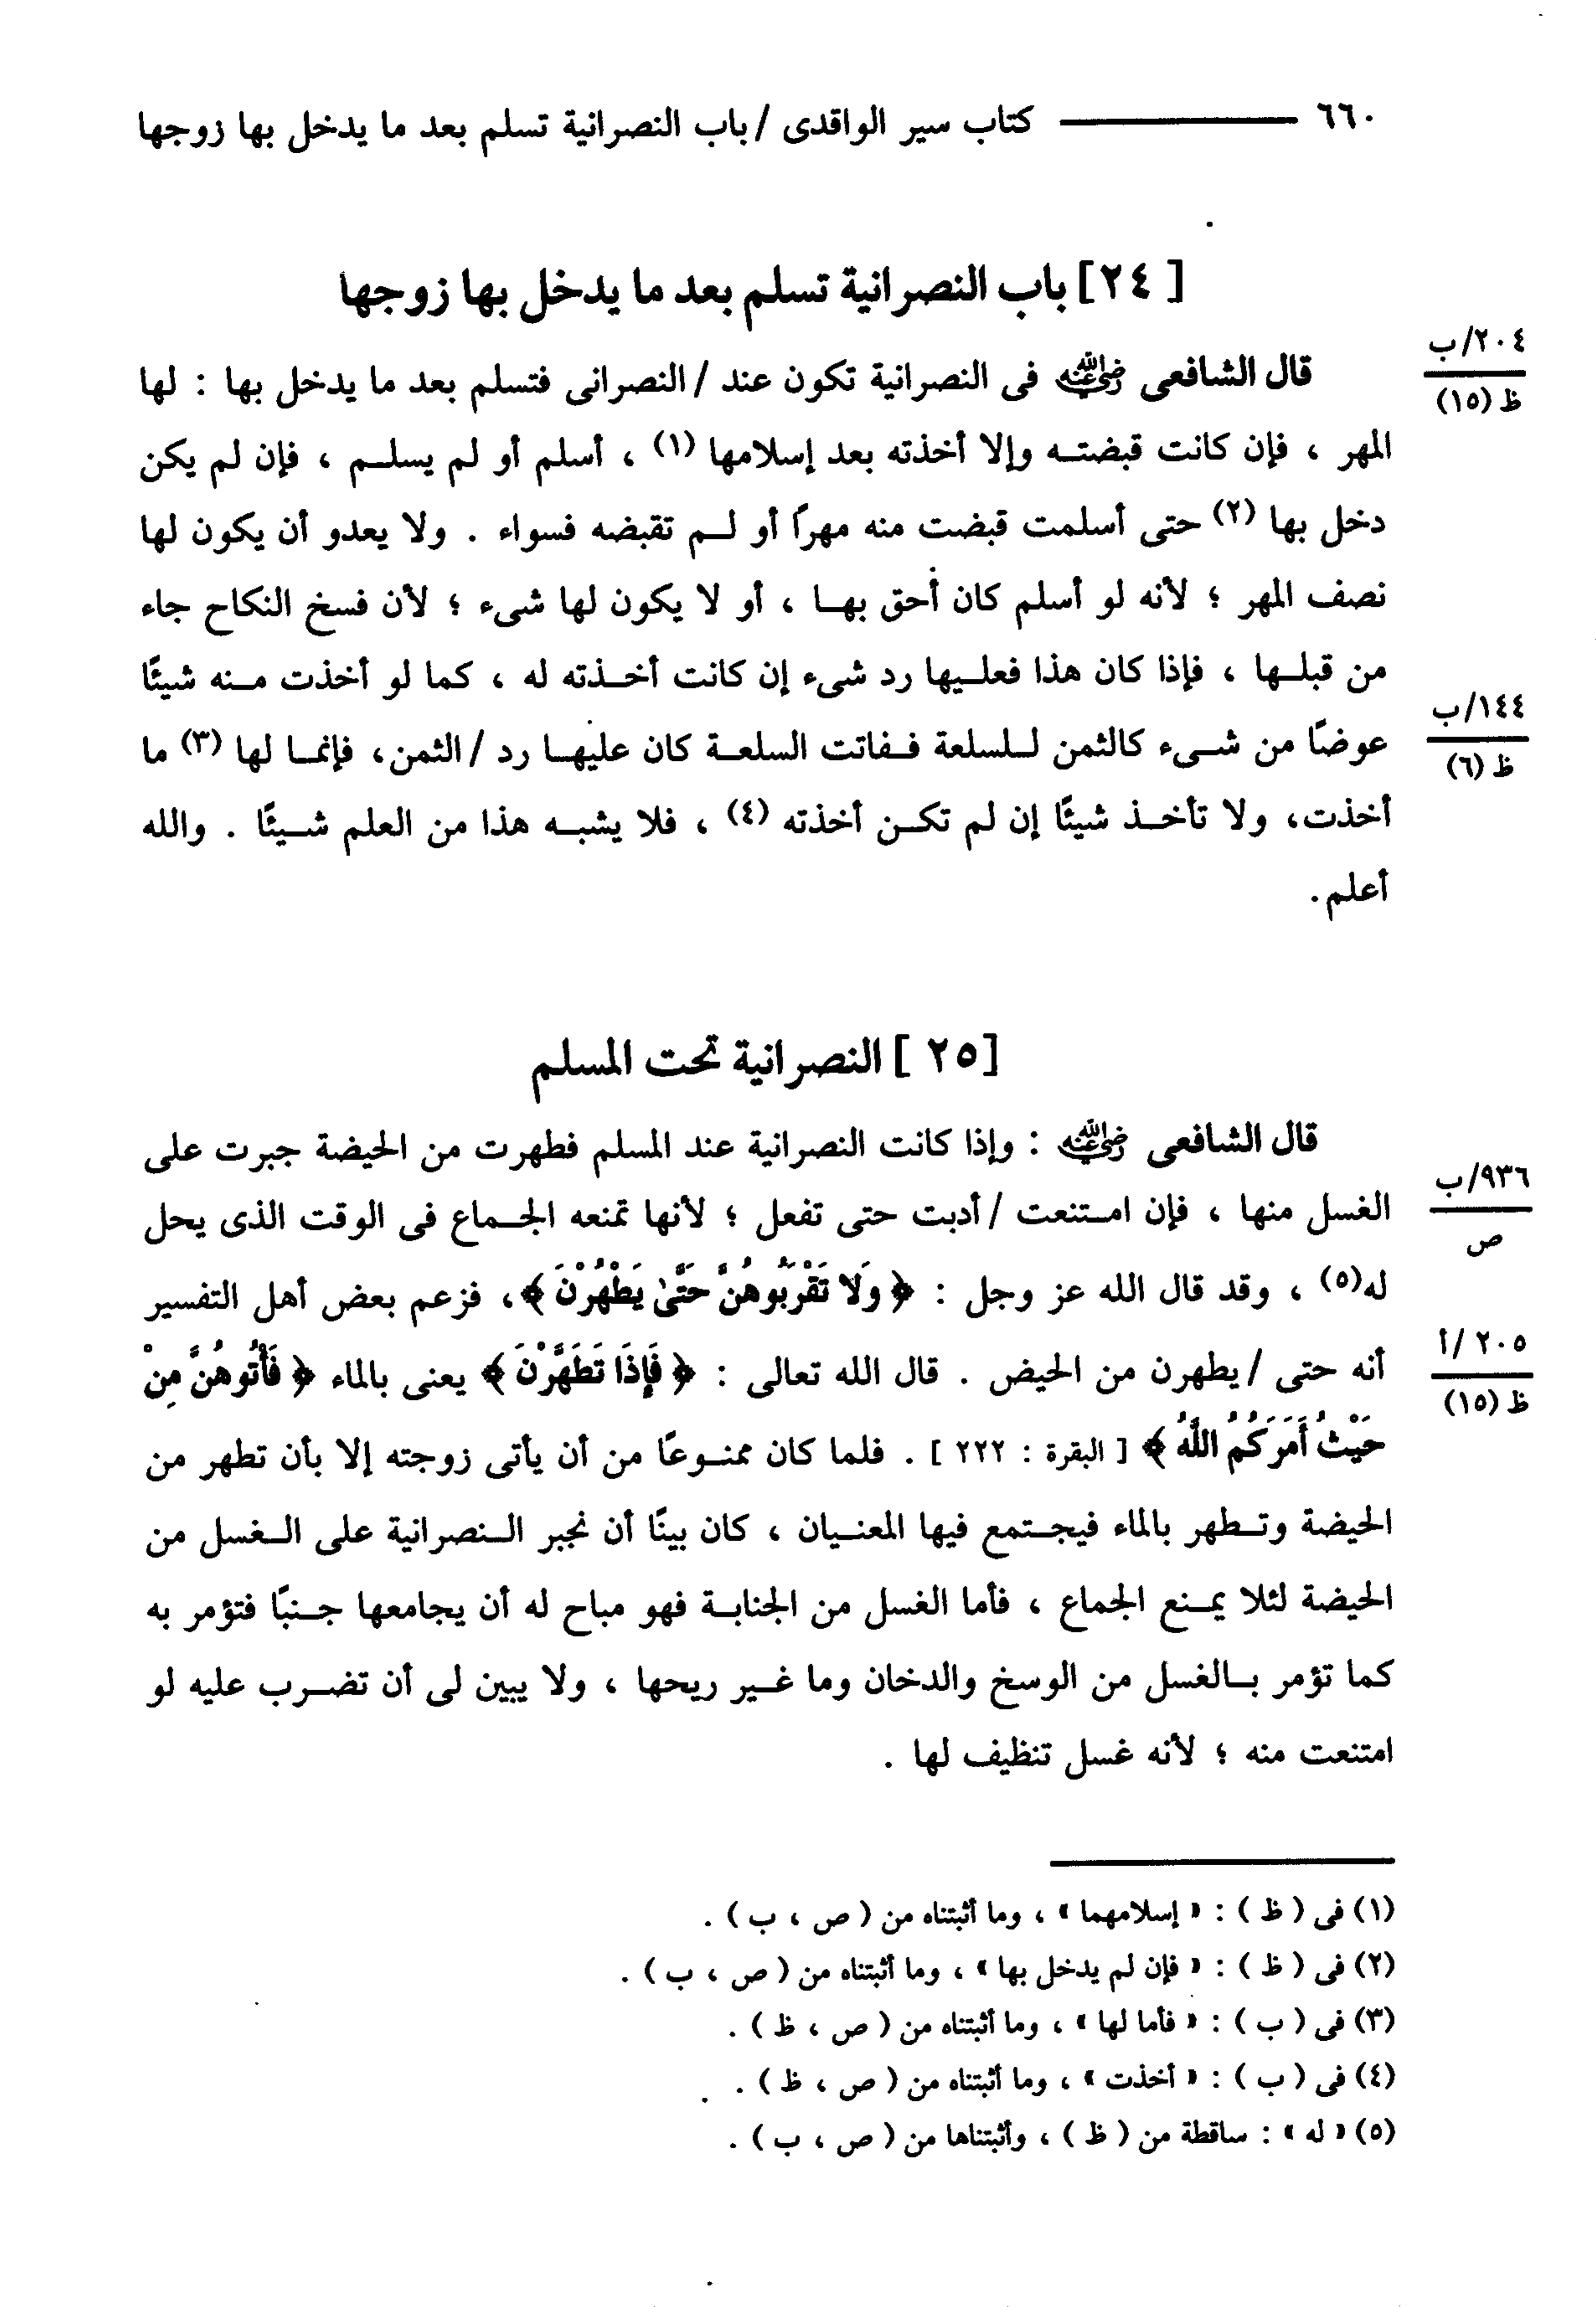 ٦٦٠ ــــــــ كتاب سير الواقدى / باب النصرانية تسلم بعد ما يدخل بها زوجها
[ ٢٤ ] باب النصرانية تسلم بعد ما يدخل بها زوجها
قال الشافعى رضي الله عنه فى النصرانية تكون عند / النصرانى فتسلم بعد ما يدخل بها : لها
٢٠٤/ب
ظ (١٥)
المهر ، فإن كانت قبضته وإلا أخذته بعد إسلامها (١) ، أسلم أو لم يسلم ، فإن لم يكن
دخل بها (٢) حتى أسلمت قبضت منه مهرًا أو لم تقبضه فسواء . ولا يعدو أن يكون لها
نصف المهر ؛ لأنه لو أسلم كان أحق بها ، أو لا يكون لها شىء ؛ لأن فسخ النكاح جاء
من قبلها ، فإذا كان هذا فعليها رد شىء إن كانت أخذته له ، كما لو أخذت منه شيئًا
عوضًا من شىء كالثمن للسلعة ففاتت السلعة كان عليها رد / الثمن، فإنما لها (٣) ما
١٤٤/ب
ظ (٦)
أخذت، ولا تأخذ شيئًا إن لم تكن أخذته (٤) ، فلا يشبه هذا من العلم شيئًا . والله
أعلم.
[٢٥ ] النصرانية تحت المسلم
قال الشافعى رضي الله عنه : وإذا كانت النصرانية عند المسلم فطهرت من الحيضة جبرت على
الغسل منها ، فإن امتنعت / أدبت حتى تفعل ؛ لأنها تمنعه الجماع فى الوقت الذى يحل
٩٣٦/ب
ص
له(٥) ، وقد قال الله عز وجل : ﴿ وَلا تَقْرَبُوهُنَّ حَتَّىٰ يَطْهُرْنَ ﴾، فزعم بعض أهل التفسير
أنه حتى / يطهرن من الحيض . قال الله تعالى : ﴿ فَإِذَا تَطَهَّرْنَ ﴾ يعنى بالماء ﴿ فَأْتُوهُنَّ مِنْ
٢٠٥ /أ
ظ (١٥)
حَيْثُ أَمَرَكُمُ اللَّهُ ﴾ [ البقرة : ٢٢٢ ] . فلما كان ممنوعًا من أن يأتى زوجته إلا بأن تطهر من
الحيضة وتطهر بالماء فيجتمع فيها المعنيان ، كان بينًا أن نجبر النصرانية على الغسل من
الحيضة لئلا يمنع الجماع ، فأما الغسل من الجنابة فهو مباح له أن يجامعها جنبًا فتؤمر به
كما تؤمر بالغسل من الوسخ والدخان وما غير ريحها ، ولا يبين لى أن تضرب عليه لو
امتنعت منه ؛ لأنه غسل تنظيف لها .
(١) فى ( ظ ) : « إسلامهما » ، وما أثبتناه من ( ص ، ب ) .
(٢) فى ( ظ ) : « فإن لم يدخل بها » ، وما أثبتناه من ( ص ، ب ) .
(٣) فى ( ب ) : « فأما لها » ، وما أثبتناه من ( ص ، ظ ) .
(٤) فى ( ب ) : « أخذت » ، وما أثبتناه من ( ص ، ظ ) .
(٥) « له » : ساقطة من ( ظ ) ، وأثبتناها من ( ص ، ب ) .